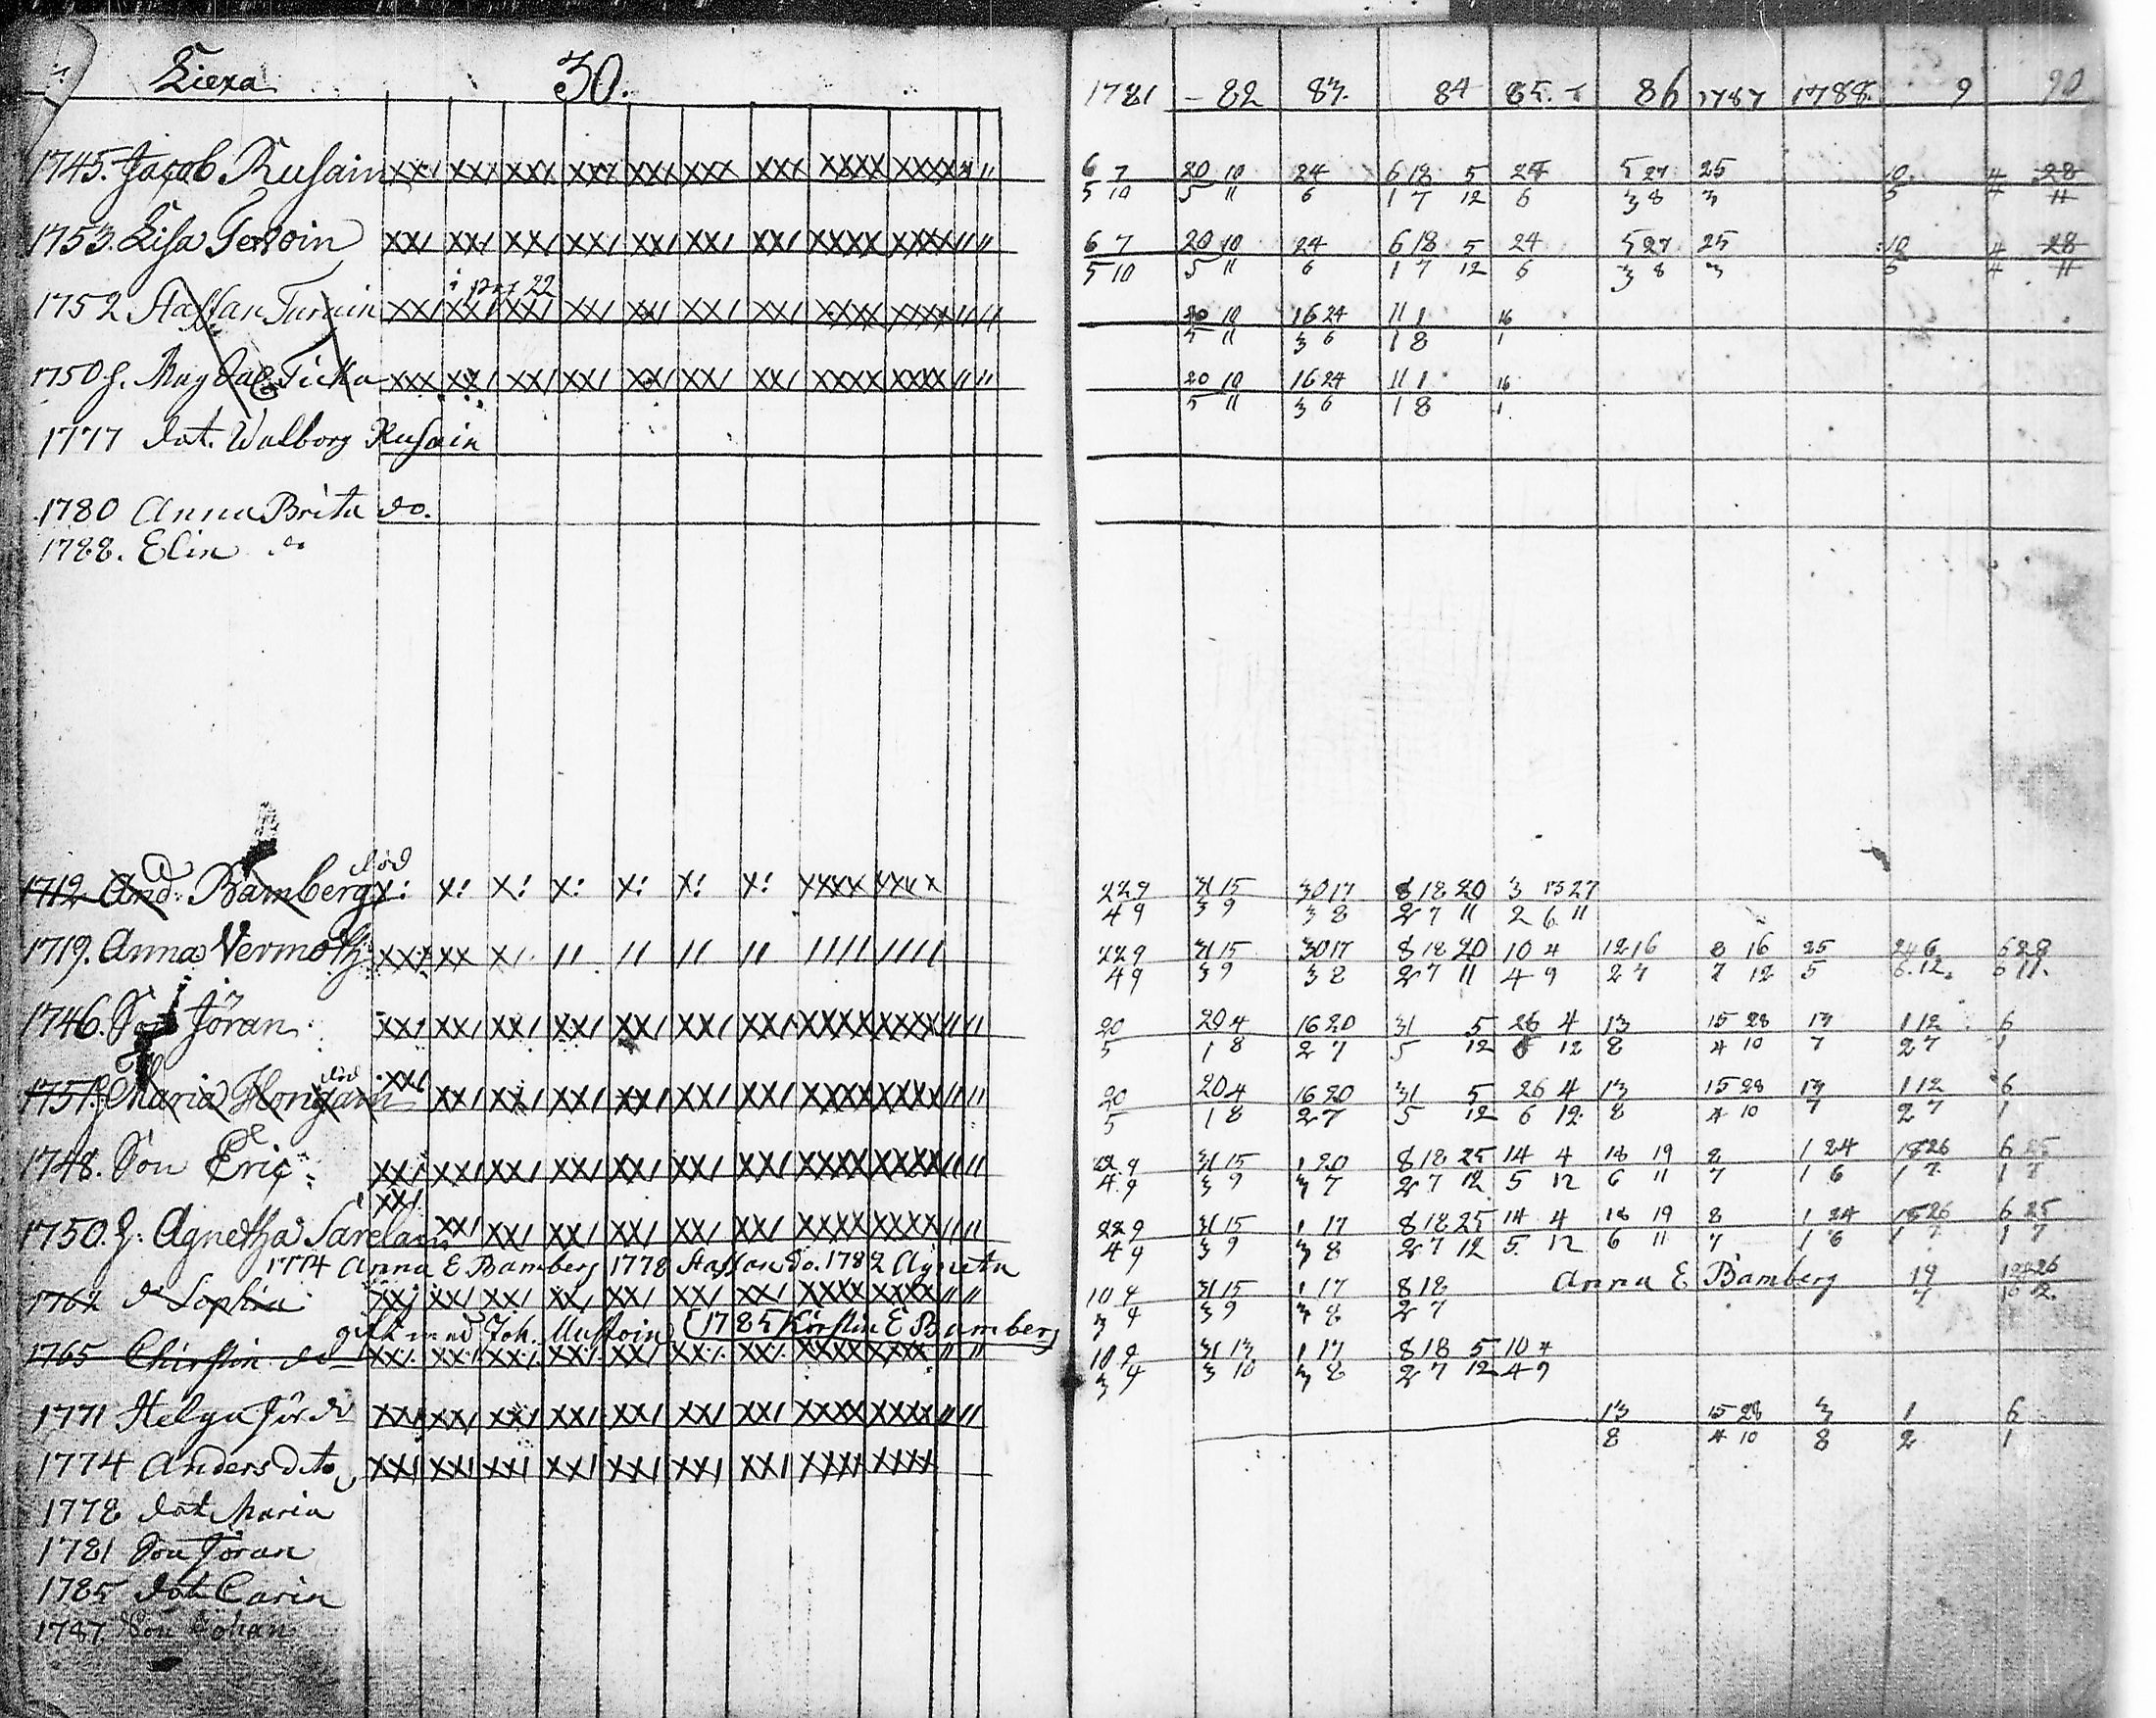 Liexa 30.
1781 - 82 83. 84 85. 86 1787 1788. 9 90
1745. Jacob Rusain xx/ xx/ xx/ xx/ xx/ xxx xx/ xxxx xxxx
6/5 7/10 20/5 10/11 24/6 6/1 18/7 5/12 24/6 5/3 27/8 25/3 10/5 4/4 28/11
1753. Lisa Terzoin xx/ xx/ xx/ xx/ xx/ xx/ xx/ xxxx xxxx // //
6/5 7/10 20/5 10/11 24/6 6/1 18/7 5/12 24/6 5/3 27/8 25/3 10/5 4/4 28/11
i pag 22
1752 Staffan Turuin xx/ xx/ xx/ xx/ xx/ xx/ xx/ xxxx xxxx // //
20/5 10/11 16/3 24/6 11/1 1/8 16/1
1750 h. Magdal: Ticka xxx xx/ xx/ xx/ xx/ xx/ xx/ xxxx xxxx // //
20/5 10/11 16/3 24/6 11/1 1/8 16/1
1777 dot. Walborg Rusain
1780 Anna Brita do.
1788. Elin do
död
1712 And: Bamberg x: x: x: x: x: x: x: xxxx xxxx
22/4 9/9 31/3 15/9 30/3 17/8 8/2 18/7 20/11 3/2 13/6 27/11
1719. Anna Vermoth xxx xx x/ // // // // //// ////
22/4 9/9 31/3 15/9 30/3 17/8 8/2 18/7 20/11 10/4 4/9 12/2 16/7 8/7 16/12 25/5 24/6 6/12. 6/6 28/11.
1746. Son Jöran xx/ xx/ xx/ xx/ xx/ xx/ xx/ xxxx xxxx // //
20/5 20/1 4/8 16/2 20/7 31/5 5/12 26/6 4/12 13/8 15/4 28/10 13/7 1/2 12/7 6/1
död
1751. h. Maria Hongain xx/ xx/ xx/ xx/ xx/ xx/ xx/ xxxx xxxx // //
20/5 20/1 4/8 16/2 20/7 31/5 5/12 26/6 4/12. 13/8 15/4 28/10 13/7 1/2 12/7 6/1
1748. Son Eric xx/ xx/ xx/ xx/ xx/ xx/ xx/ xxxx xxxx // //
22/4 9/9 31/3 15/9 1/3 20/7 8/2 18/7 25/12 14/5 4/12 18/6 19/11 8/7 1/1 24/6 18/1 26/7 6/1 25/7
1750. h. Agnetha Särelain xx/ xx/ xx/ xx/ xx/ xx/ xx/ xxxx xxxx // //
22/4 9/9 31/3 15/9 1/3 17/8 8/2 18/7 25/12 14/5 4/12 18/6 19/11 8/7 1/1 24/6 18/1 26/7 6/1 25/7
1774 Anna E Bamberg 1778 Staffan do. 1782 Agneta
1762 dr Sophia xx/ xx/ xx/ xx/ xx/ xx/ xx/ xxxx xxxx // //
10/3 4/4 31/3 15/9 1/3 17/8 8/2 18/7 Anna E Bamberg
gift med Joh. Mustoin (1785 Kirstin E Bamberg
1765 Chirstin do xx/ xx/ xx/ xx/ xx/ xx/ xx/ xxxx xxxx // //
10/3 31/3 13/10 1/3 17/8 8/2 18/7 5/12 10/4
1771 Helga Jör. dr xx/ xx/ xx/ xx/ xx/ xx/ xx/ xxxx xxxx // //
13/8 15/4 28/10 3/8 1/2 6/1
1774 Anders dito xx/ xx/ xx/ xx/ xx/ xx/ xx/ xxxx xxxx
1778 dot Maria
1781 Son Jöran
1785 dot Carin
1787 Son Johan